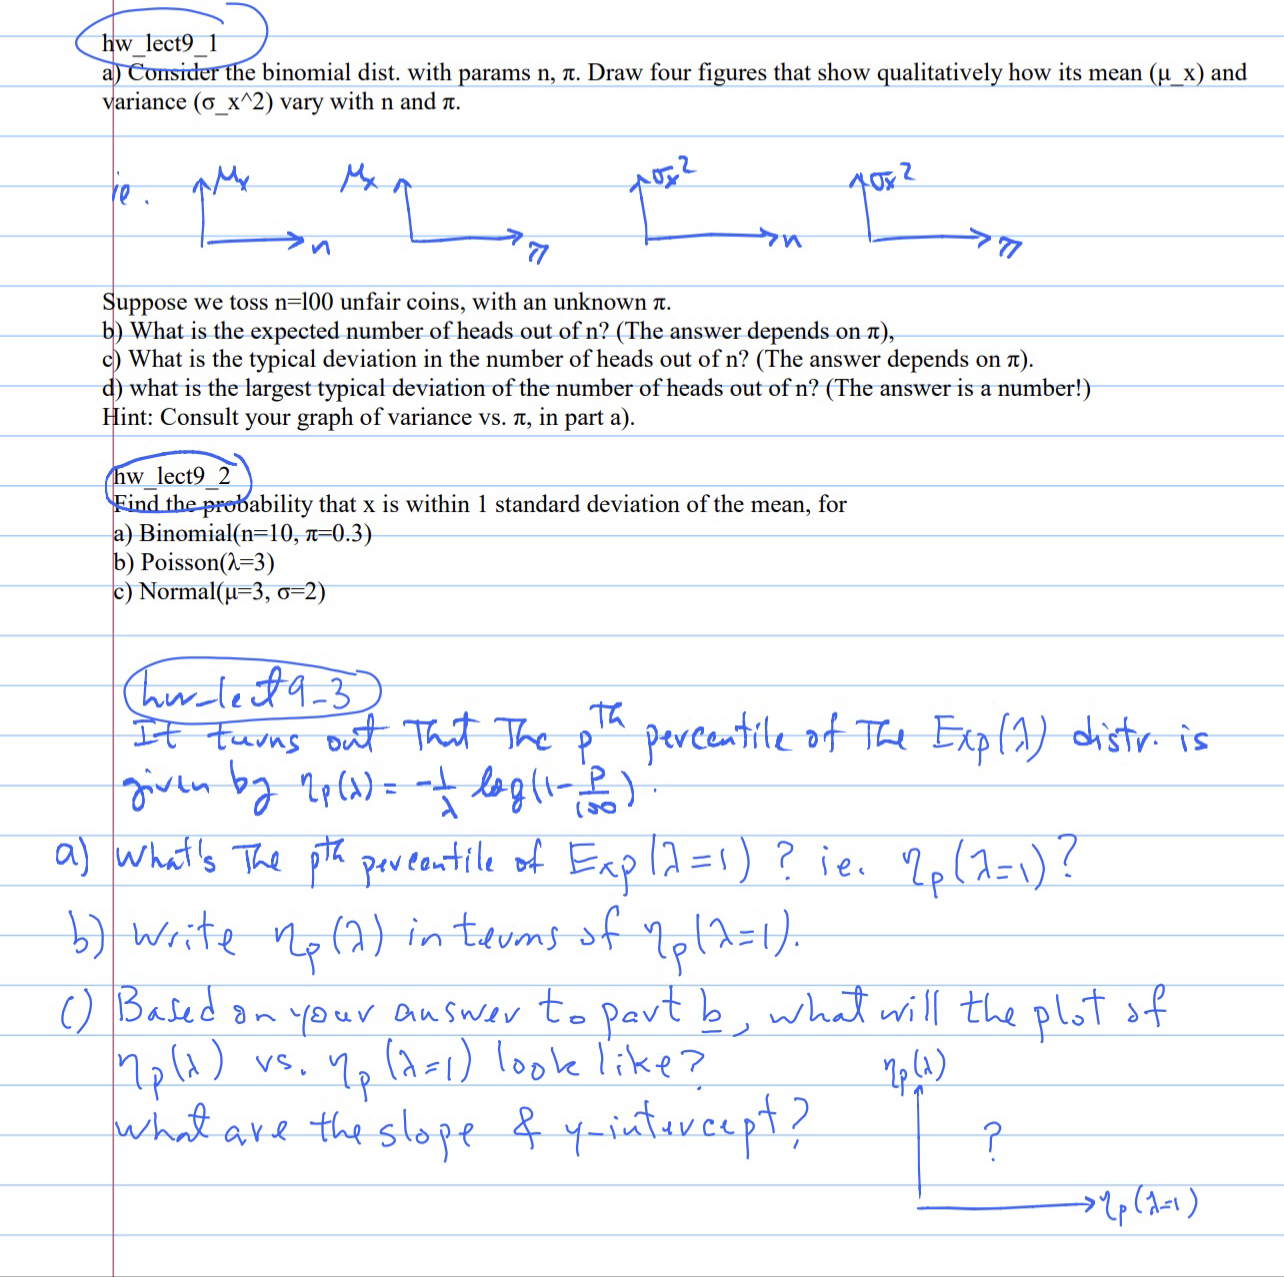 hw_lect9_1
a) Consider the binomial dist. with params n, π. Draw four figures that show qualitatively how its mean (μ_x) and
variance (σ_x^2) vary with n and π.
ie. μx n μx π σx² n σx² π
Suppose we toss n=100 unfair coins, with an unknown π.
b) What is the expected number of heads out of n? (The answer depends on π),
c) What is the typical deviation in the number of heads out of n? (The answer depends on π).
d) what is the largest typical deviation of the number of heads out of n? (The answer is a number!)
Hint: Consult your graph of variance vs. π, in part a).
hw_lect9_2
Find the probability that x is within 1 standard deviation of the mean, for
a) Binomial(n=10, π=0.3)
b) Poisson(λ=3)
c) Normal(μ=3, σ=2)
hw_lect9_3
It turns out That The pTh percentile of The Exp(λ) distr. is
given by ηp(λ) = -1/λ log(1-P/100).
a) What's The pth percentile of Exp(λ=1)? ie. ηp(λ=1)?
b) Write ηp(λ) in terms of ηp(λ=1).
c) Based on your answer to part b, what will the plot of
ηp(λ) vs. ηp(λ=1) look like?
what are the slope & y-intercept?
ηp(λ)
?
ηp(λ=1)